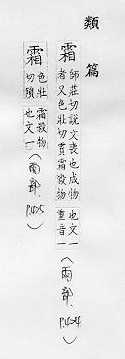 類篇
霜 師莊切說文喪也成物
者又色壯切霣霜殺物
也文一
重音一
(雨部, P.424)
霜 色壯
切隕
霜殺物
也文一
(雨部 P.425)